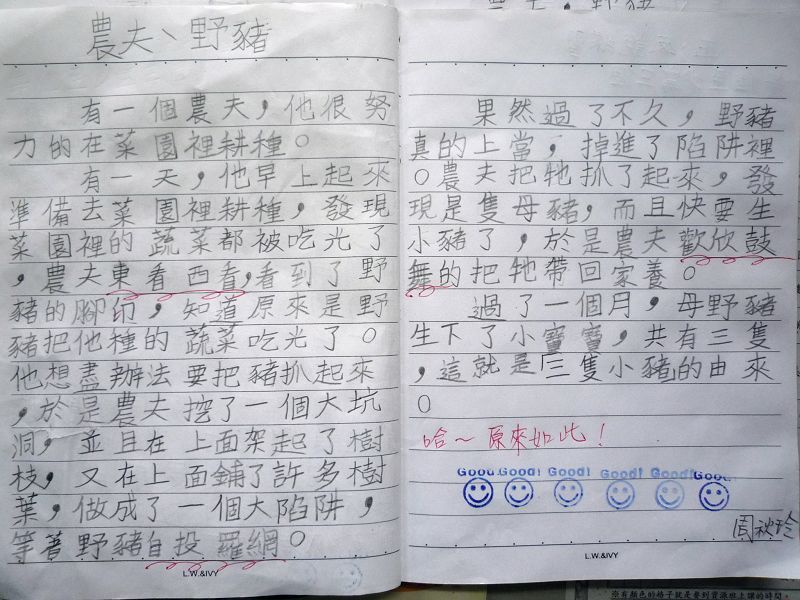 農夫、野豬
有一個農夫,他很努
力的在菜園裡耕種。
有一天,他早上起來
準備去菜園裡耕種,發現
菜園裡的蔬菜都被吃光了
,農夫東看西看,看到了野
豬的腳印,知道原來是野
豬把他種的蔬菜吃光了。
他想盡辦法要把豬抓起來
,於是農夫挖了一個大坑
洞,並且在上面架起了樹
枝,又在上面鋪了許多樹
葉,做成了一個大陷阱,
等著野豬自投羅網。
L.W.&IVY
果然過了不久,野豬
真的上當,掉進了陷阱裡
。農夫把牠抓了起來,發
現是隻母豬,而且快要生
小豬了,於是農夫歡欣鼓
舞的把牠帶回家養。
過了一個月,母野豬
生下了小寶寶,共有三隻
,這就是「三隻小豬」的由來
。
哈~原來如此!
Good! Good! Good! Good! Good! Good!
周秋玲
L.W.&IVY
※有顏色的格子就是要到資源班上課的時間。